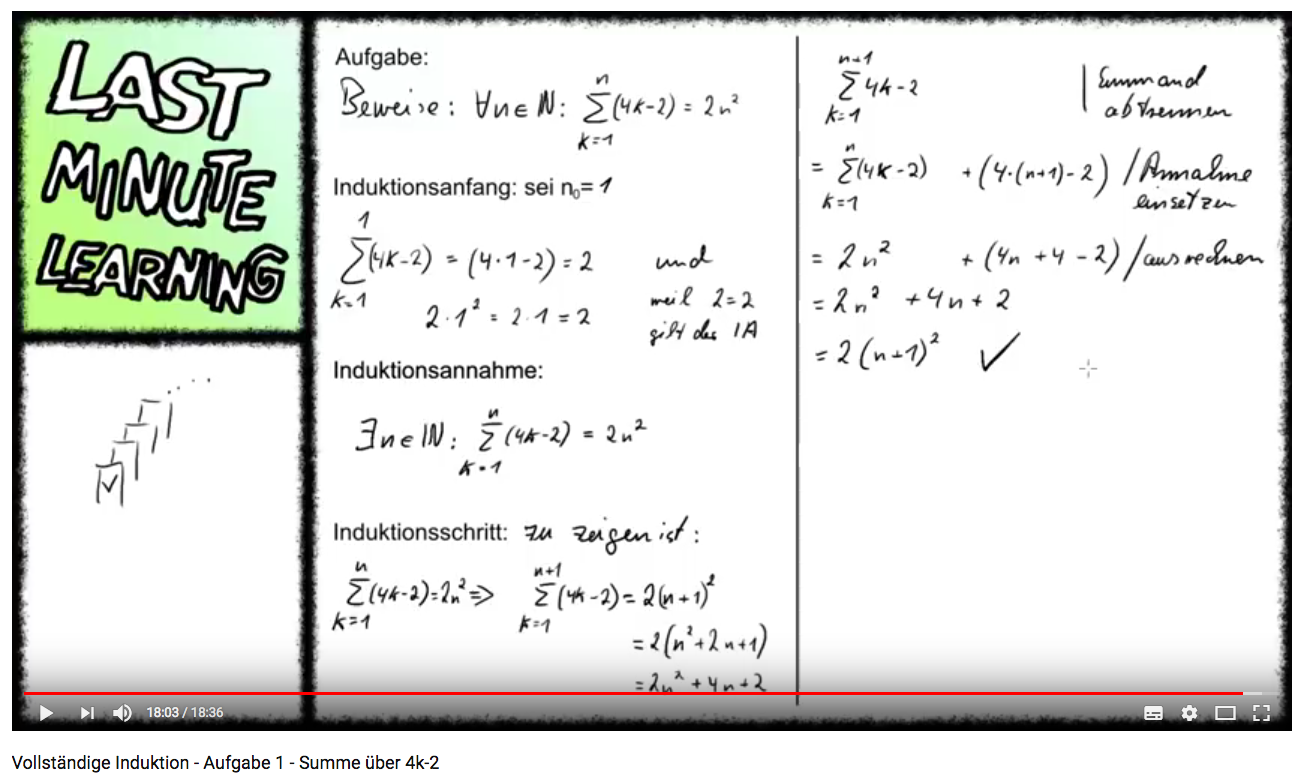 LAST
MINUTE
LEARNING
Aufgabe:
Beweise: ∀n∈ℕ: ∑_{k=1}^{n} (4k-2) = 2n²
Induktionsanfang: sei n₀= 1
∑_{k=1}^{1} (4k-2) = (4·1-2) = 2 und
2·1² = 2·1 = 2 weil 2=2
gilt der IA
Induktionsannahme:
∃n∈ℕ: ∑_{k=1}^{n} (4k-2) = 2n²
Induktionsschritt: zu zeigen ist:
∑_{k=1}^{n} (4k-2)=2n² => ∑_{k=1}^{n+1} (4k-2) = 2(n+1)²
= 2(n²+2n+1)
= 2n²+4n+2
∑_{k=1}^{n+1} 4k-2 | Summand
abtrennen
= ∑_{k=1}^{n} (4k-2) + (4·(n+1)-2) / Annahme
einsetzen
= 2n² + (4n+4-2) / ausrechnen
= 2n² + 4n + 2
= 2(n+1)² ✓
18:03 / 18:36
Vollständige Induktion - Aufgabe 1 - Summe über 4k-2